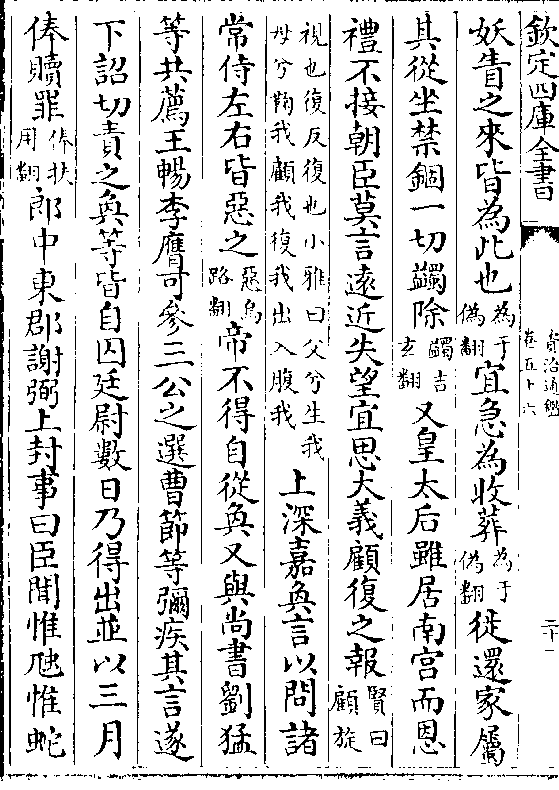 欽定四庫全書
資治通鑑
卷五十六
二十一
妖眚之來皆為此也為于偽翻宜急為收葬為于偽翻徙還家屬
其從坐禁錮一切蠲除蠲吉玄翻又皇太后雖居南宫而恩
禮不接朝臣莫言遠近失望宜思大義顧復之報賢曰顧旋
視也復反復也小雅曰父兮生我母兮鞠我顧我復我出入腹我上深嘉奐言以問諸
常侍左右皆惡之惡烏路翻帝不得自從奐又與尚書劉猛
等共薦王暢李膺可參三公之選曹節等彌疾其言遂
下詔切責之奐等皆自囚廷尉數日乃得出並以三月
俸贖罪俸扶用翻郎中東郡謝弼上封事曰臣聞惟虺惟蛇